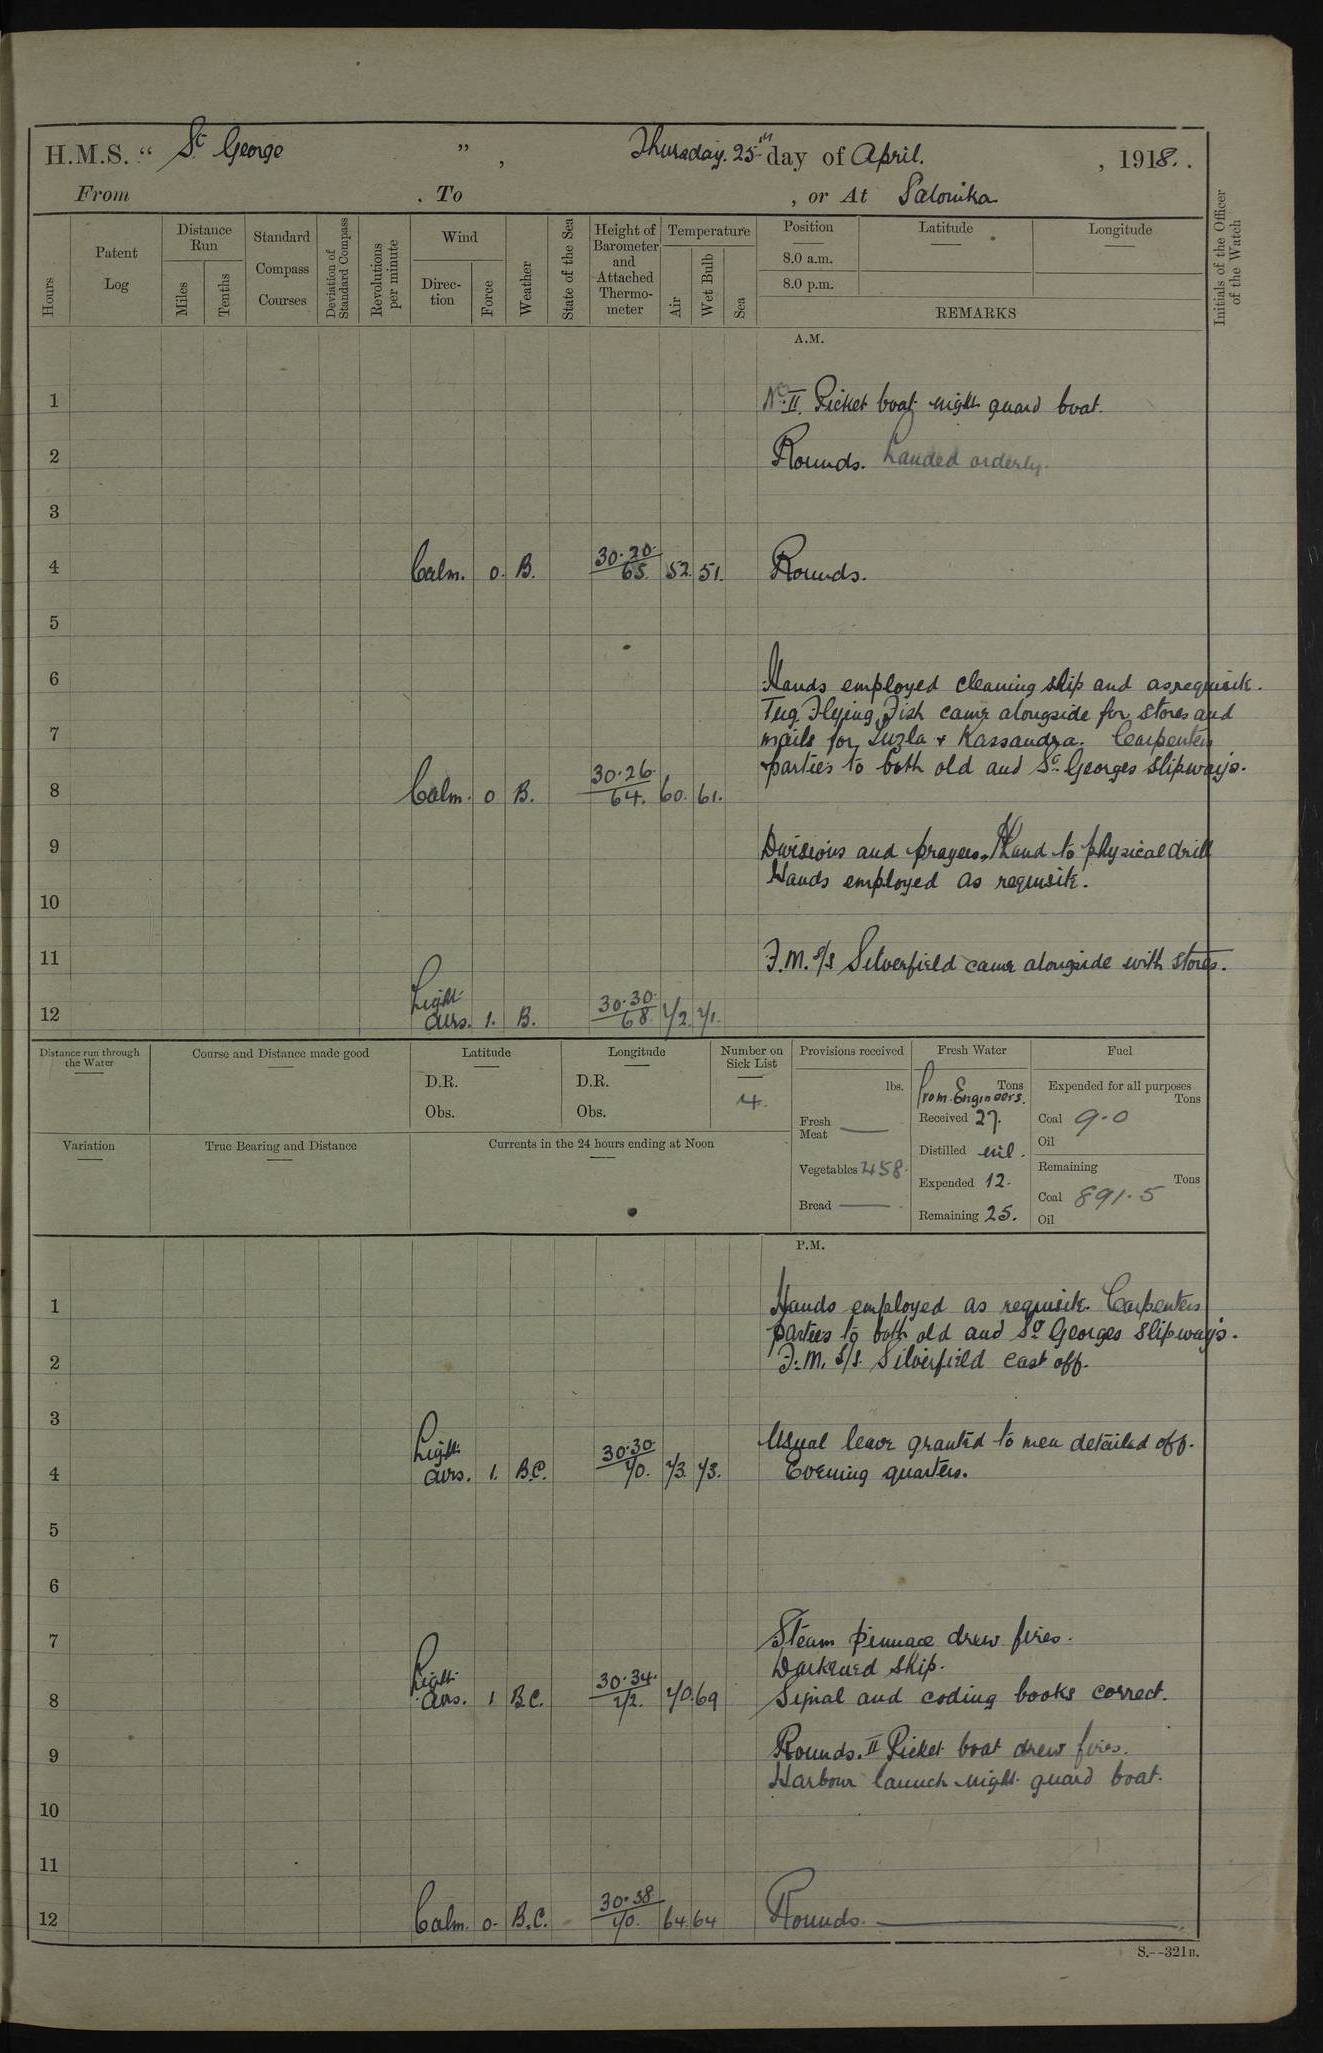 H.M.S. “ St George ” , Thursday. 25th day of April. , 1918. .
From . To , or At Salonika
Hours
Patent Log
Distance Run
Miles
Tenths
Standard Compass Courses
Deviation of Standard Compass
Revolutions per minute
Wind
Direc-tion
Force
Weather
State of the Sea
Height of Barometer and Attached Thermo-meter
Temperature
Air
Wet Bulb
Sea
Position
8.0 a.m.
8.0 p.m.
Latitude
Longitude
REMARKS
Initials of the Officer of the Watch
A.M.
1 No. II. Picket boat night guard boat.
2 Rounds. Landed orderly.
3
4 Calm. 0. B. 30.20. 65. 52. 51. Rounds.
5
6 Hands employed cleaning ship and as requisite.
Tug Flying Fish came alongside for stores and
7 mails for Tuzla + Kassandra. Carpenters
parties to both old and St. Georges slipways.
8 Calm. 0 B. 30.26. 64. 60. 61.
9 Divisions and prayers. Hand to physical drill
Hands employed as requisite.
10
11 F.M. S/S Silverfield came alongside with stores.
12 Light airs. 1. B. 30.30. 68. 72. 71.
Distance run through the Water
Course and Distance made good
Latitude
D.R.
Obs.
Longitude
D.R.
Obs.
Number on Sick List
4.
Provisions received
lbs.
Fresh Meat
Vegetables 458.
Bread
Fresh Water
Tons
From Engineers.
Received 27.
Distilled nil.
Expended 12.
Remaining 25.
Fuel
Expended for all purposes
Tons
Coal 9.0
Oil
Remaining
Tons
Coal 891.5
Oil
Variation
True Bearing and Distance
Currents in the 24 hours ending at Noon
P.M.
1 Hands employed as requisite. Carpenters
parties to both old and St. Georges slipways.
2 F.M. S/S. Silverfield cast off.
3
Usual leave granted to men detailed off.
4 Light airs. 1. B.C. 30.30. 70. 73. 73. Evening quarters.
5
6
7 Steam pinnace drew fires.
Darkened ship.
8 Light airs. 1 B.C. 30.34. 72. 70. 69 Signal and coding books correct.
9 Rounds. II Picket boat drew fires.
Harbour launch night guard boat.
10
11
12 Calm. 0. B.C. 30.38 70. 64. 64 Rounds.
S.--321B.